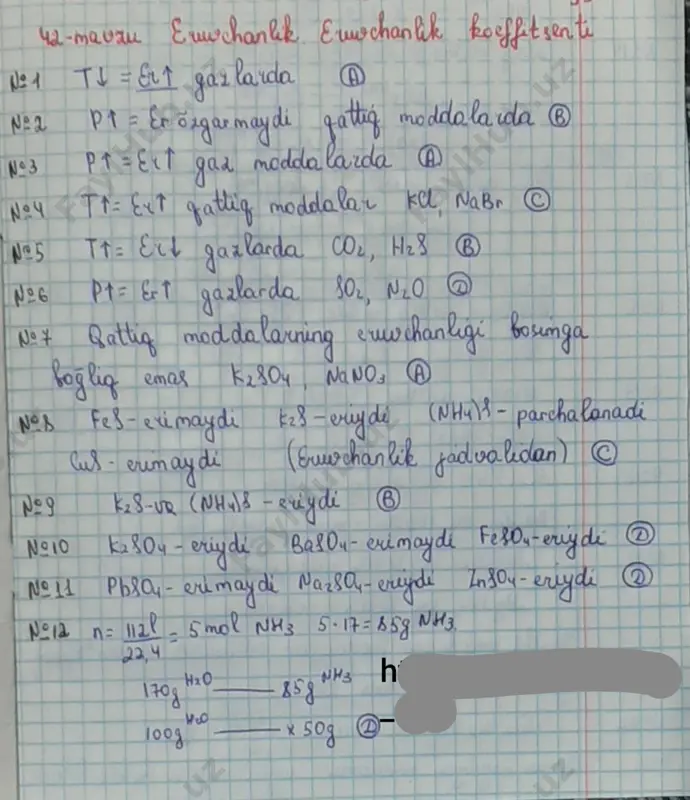 42-mavzu Eruvchanlik Eruvchanlik koeffitsenti
№1 T↓ = Er↑ gazlarda (A)
№2 P↑ = Er õzgarmaydi qattiq moddalarda (B)
№3 P↑ = Er↑ gaz moddalarda (A)
№4 T↑= Er↑ qattiq moddalar KCl, NaBr (C)
№5 T↑= Er↓ gazlarda CO₂, H₂S (B)
№6 P↑= Er↑ gazlarda SO₂, N₂O (D)
№7 Qattiq moddalarning eruvchanligi bosimga
bog̃liq emas K₂SO₄, NaNO₃ (A)
№8 FeS-erimaydi K₂S-eriydi (NH₄)S-parchalanadi
CuS-erimaydi (Eruvchanlik jadvalidan) (C)
№9 K₂S-va (NH₄)S-eriydi (B)
№10 K₂SO₄-eriydi BaSO₄-erimaydi FeSO₄-eriydi (D)
№11 PbSO₄-erimaydi Na₂SO₄-eriydi ZnSO₄-eriydi (D)
№12 n= 112l/22,4 = 5mol NH₃ 5·17=85g NH₃
170g H₂O —— 85g NH₃
100g H₂O —— x 50g (D)